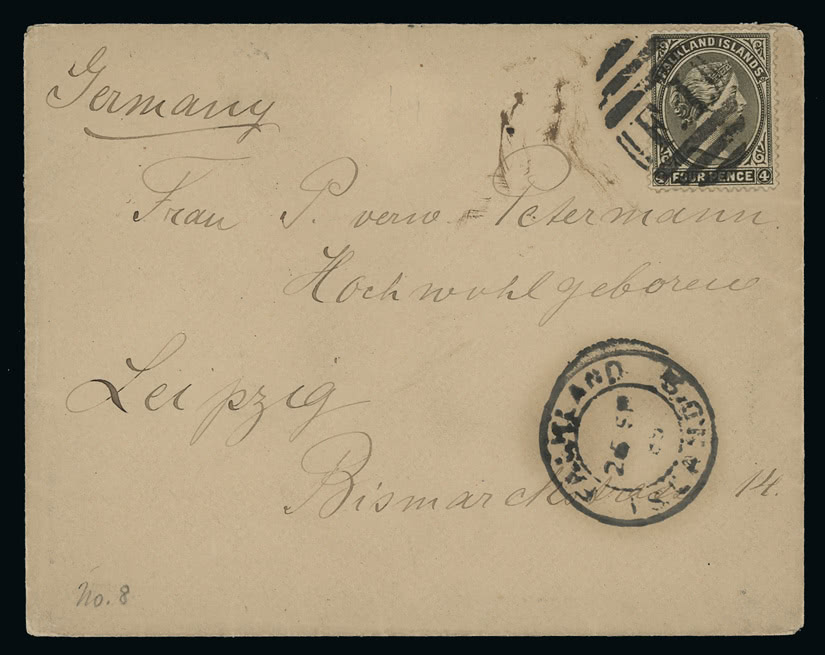 Germany
FALKLAND ISLANDS
4 FOUR PENCE 4
F 1
Frau P. verw. Petermann
Hochwohlgeboren
Leipzig
FALKLAND ISLANDS
26 SP
Bismarckstrasse 14.
No. 8